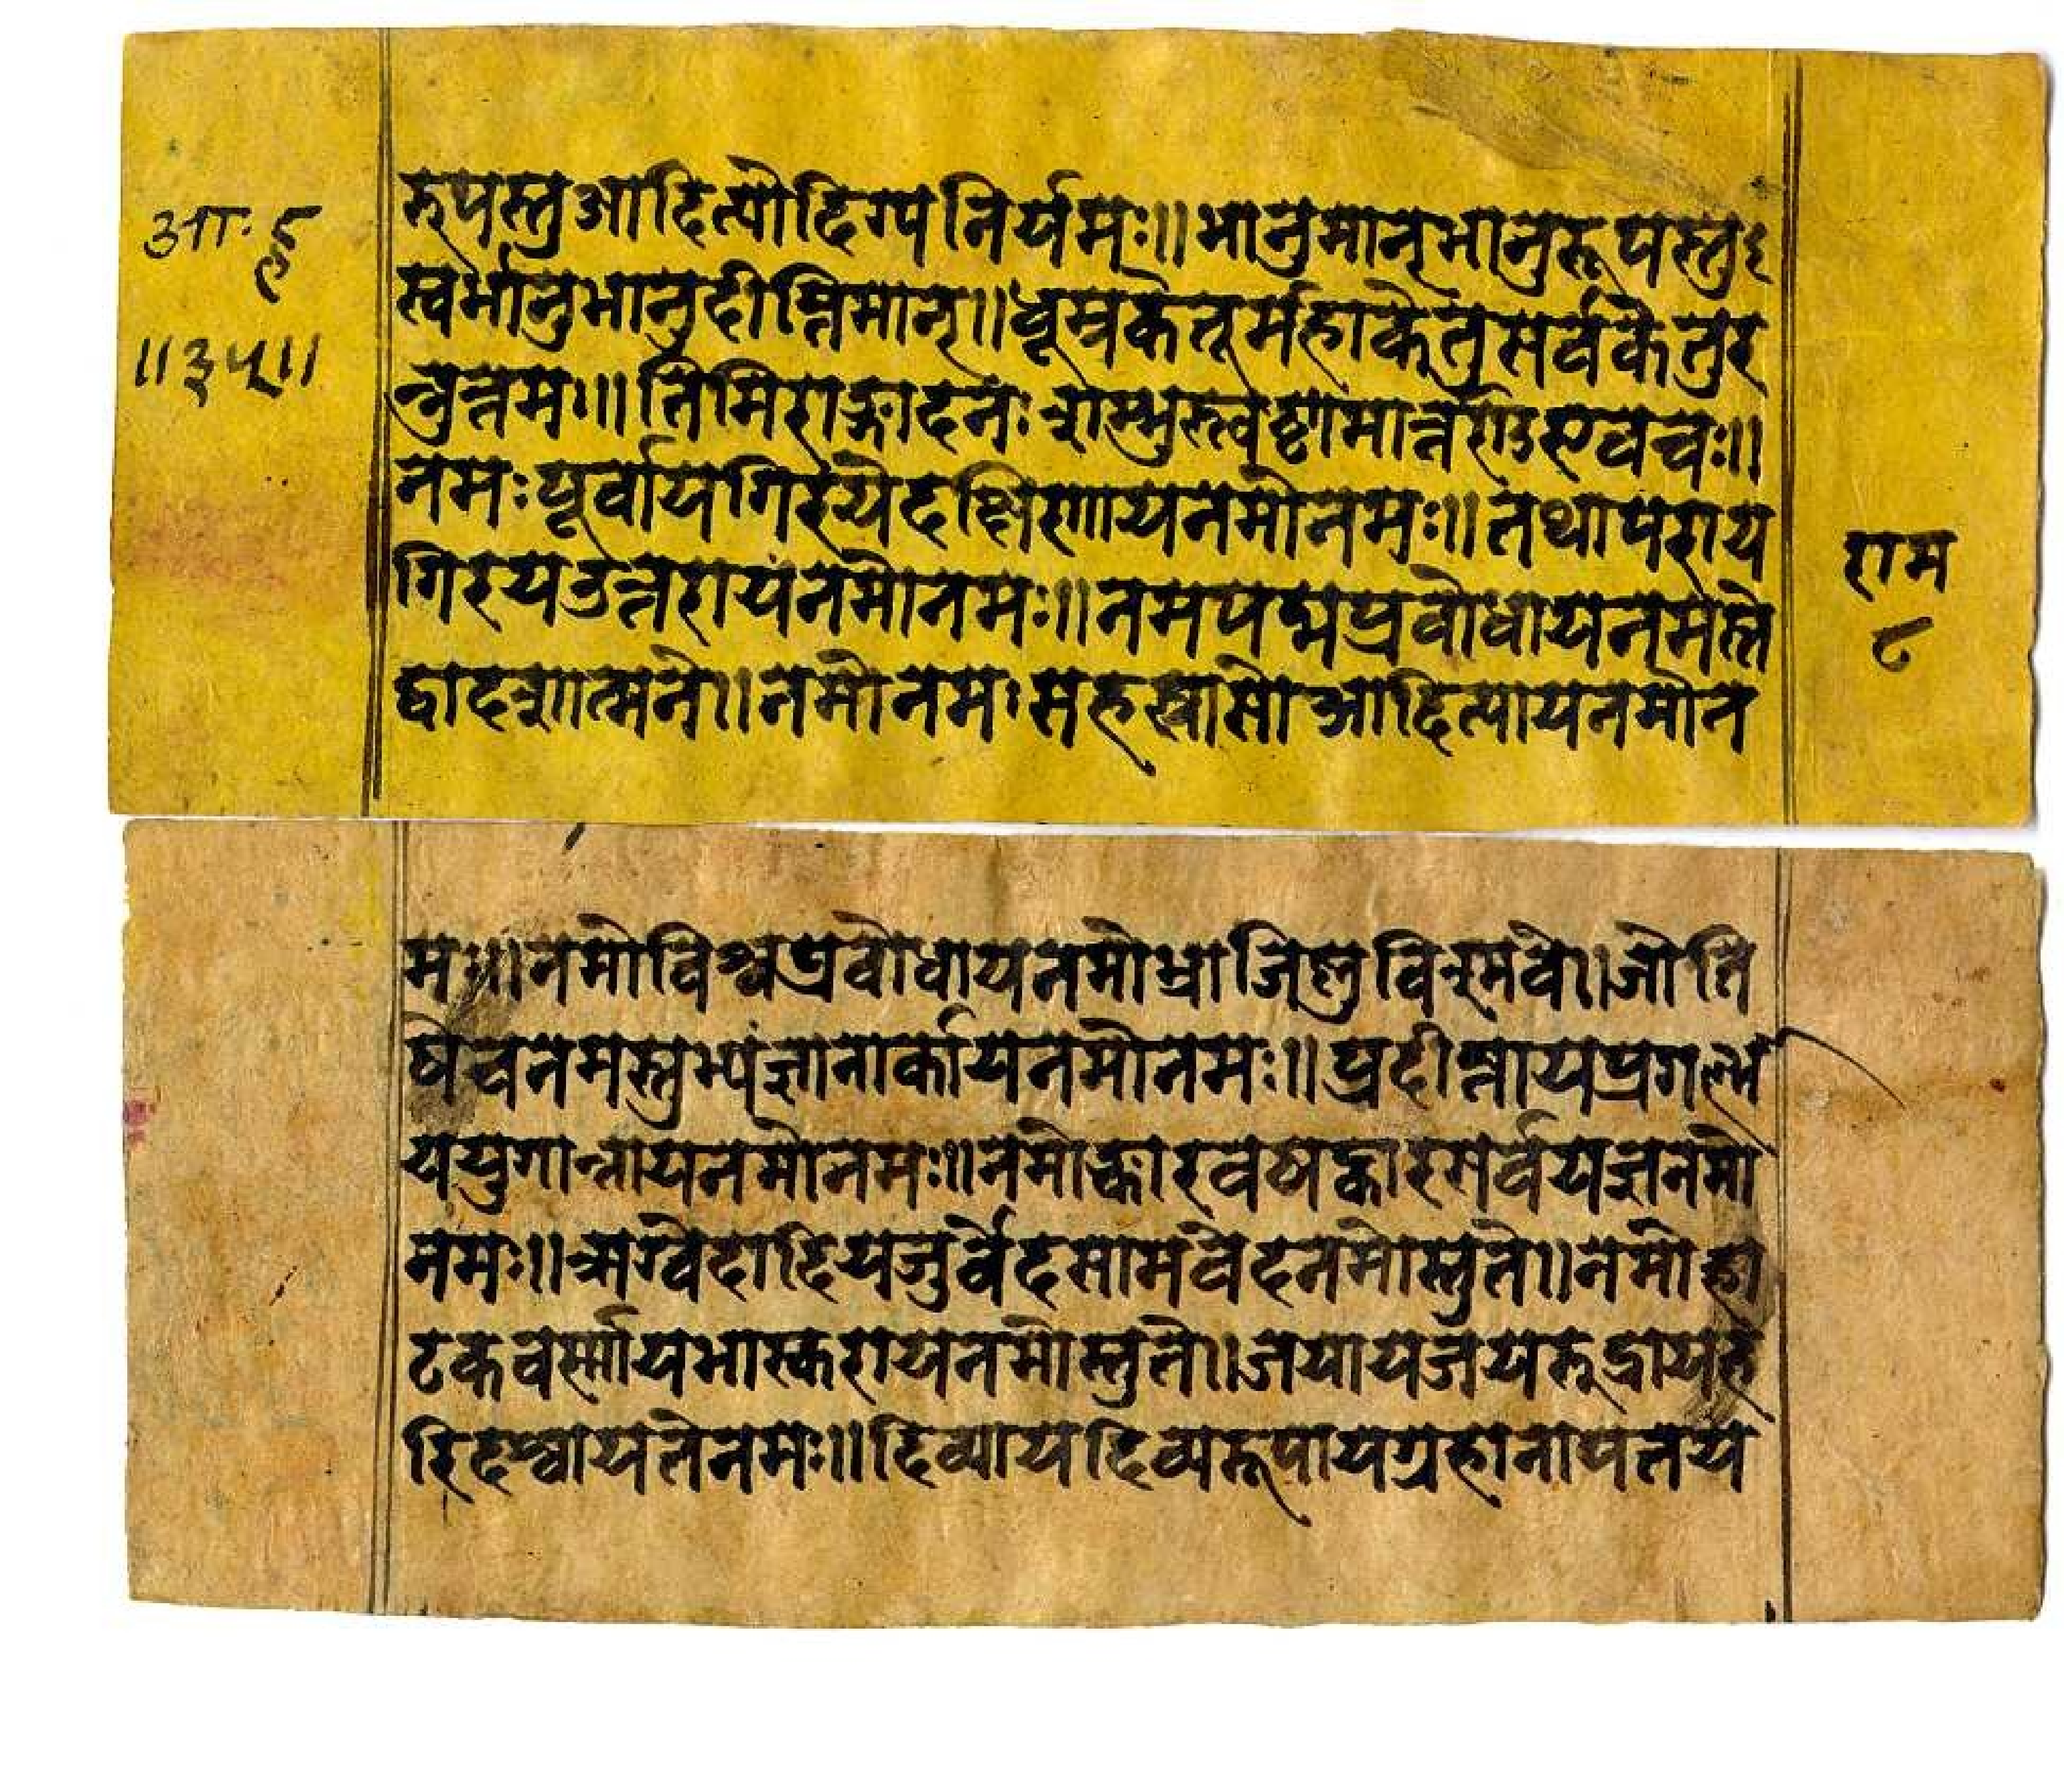 आ. हृ
॥३५॥
रुपस्तुआदित्योदिग्पनिर्यमः॥भानुमानृभानुरूपस्तुः
स्वर्भानुभानुदीप्तिमानृ॥धूम्रकेतूर्महाकेतुसर्वकेतुर
न्नुत्तमः॥तिमिराङ्गादनः शम्भुस्त्वष्टामार्त्तराडएवचः॥
नमःपूर्वायगिरयेदक्षिणायनमोनमः॥तथापराय
गिरयउत्तरायंनमोनमः॥नमपद्मप्रवोधायनमस्ते
द्वादशात्मने॥नमोनमः सहस्त्रासो आदित्यायनमोन
राम
८
मः॥नमोविश्वप्रवोधायनमोभ्राजिष्णुविश्मवे॥जोति
षेचनमस्तुभ्यंज्ञानार्कायनमोनमः॥प्रदीप्तायप्रगल्भ
ययुगान्तायनमोनमः॥नमोङ्कारवषङ्कारसर्वयज्ञनमो
नमः॥ऋग्वेदादियजुर्वेदसामवेदनमोस्तुते॥नमोहा
टकवर्णायभास्करायनमोस्तुते॥जयायजयरूद्रायह
रिदश्वायतेनमः॥दिव्यायदिव्यरूपायग्रहानापतय